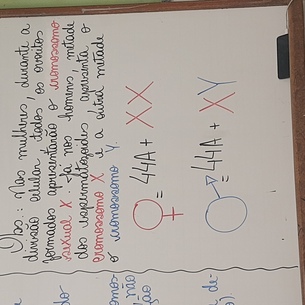 Obs: Nas mulheres, durante a
divisão celular, todos, os ovócitos
formados apresentarão o cromossomo
sexual X. Já nos homens, metade
dos espermatozoides apresenta o
cromossomo X e a outra metade
o cromossomo Y.
♀ = 44A + XX
♂ = 44A + XY
do
mos
não
ção
de-